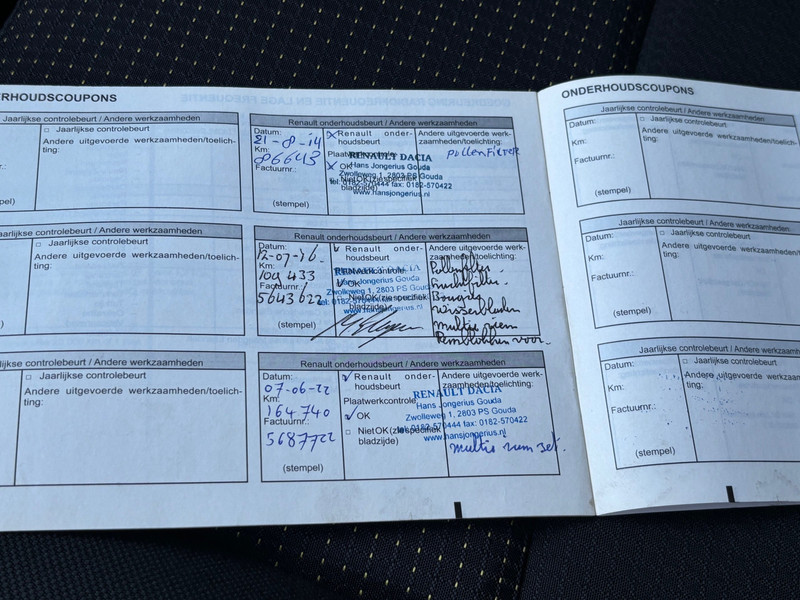 RHOUDSCOUPONS
Jaarlijkse controlebeurt / Andere werkzaamheden
□ Jaarlijkse controlebeurt
Andere uitgevoerde werkzaamheden/toelich-
ting:
(stempel)
Renault onderhoudsbeurt / Andere werkzaamheden
Datum:
21-8-14
Km:
86643
Factuurnr.:
(stempel)
Renault onder-
houdsbeurt
OK
NietOK(zie specifiek
bladzijde)
Andere uitgevoerde werk-
zaamheden/toelichting:
pollenfilter
RENAULT DACIA
Hans Jongerius Gouda
Zwolleweg 1, 2803 PS Gouda
tel: 0182-570444 fax: 0182-570422
www.hansjongerius.nl
Jaarlijkse controlebeurt / Andere werkzaamheden
□ Jaarlijkse controlebeurt
Andere uitgevoerde werkzaamheden/toelich-
ting:
Renault onderhoudsbeurt / Andere werkzaamheden
Datum:
12-07-16.
Km:
109 433
Factuurnr.:
5643622
(stempel)
Renault onder-
houdsbeurt
OK
NietOK(zie specifiek
bladzijde)
Andere uitgevoerde werk-
zaamheden/toelichting:
Pollenfilter.
Luchtfilter.
Bougies
wisserbladen
multi riem
Remblokken voor.
Hans Jongerius Gouda
Zwolleweg 1, 2803 PS Gouda
Jaarlijkse controlebeurt / Andere werkzaamheden
□ Jaarlijkse controlebeurt
Andere uitgevoerde werkzaamheden/toelich-
ting:
Renault onderhoudsbeurt / Andere werkzaamheden
Datum:
07-06-22
Km:
164 740
Factuurnr.:
5687722
(stempel)
Renault onder-
houdsbeurt
Plaatwerkcontrole
OK
□ NietOK(zie specifiek
bladzijde)
Andere uitgevoerde werk-
zaamheden/toelichting:
RENAULT DACIA
Hans Jongerius Gouda
Zwolleweg 1, 2803 PS Gouda
tel: 0182-570444 fax: 0182-570422
www.hansjongerius.nl
multi riem set.
ONDERHOUDSCOUPONS
Jaarlijkse controlebeurt / Andere
Datum:
Km:
Factuurnr.:
(stempel)
□ Jaarlijkse controlebeurt
Andere uitgevoerde werkzaamheden/
ting:
Jaarlijkse controlebeurt / Andere
Datum:
Km:
Factuurnr.:
(stempel)
□ Jaarlijkse controlebeurt
Andere uitgevoerde werkzaamheden/
ting:
Jaarlijkse controlebeurt / Andere
Datum:
Km:
Factuurnr.:
(stempel)
□ Jaarlijkse controlebeurt
Andere uitgevoerde werkzaamheden/t
ting: